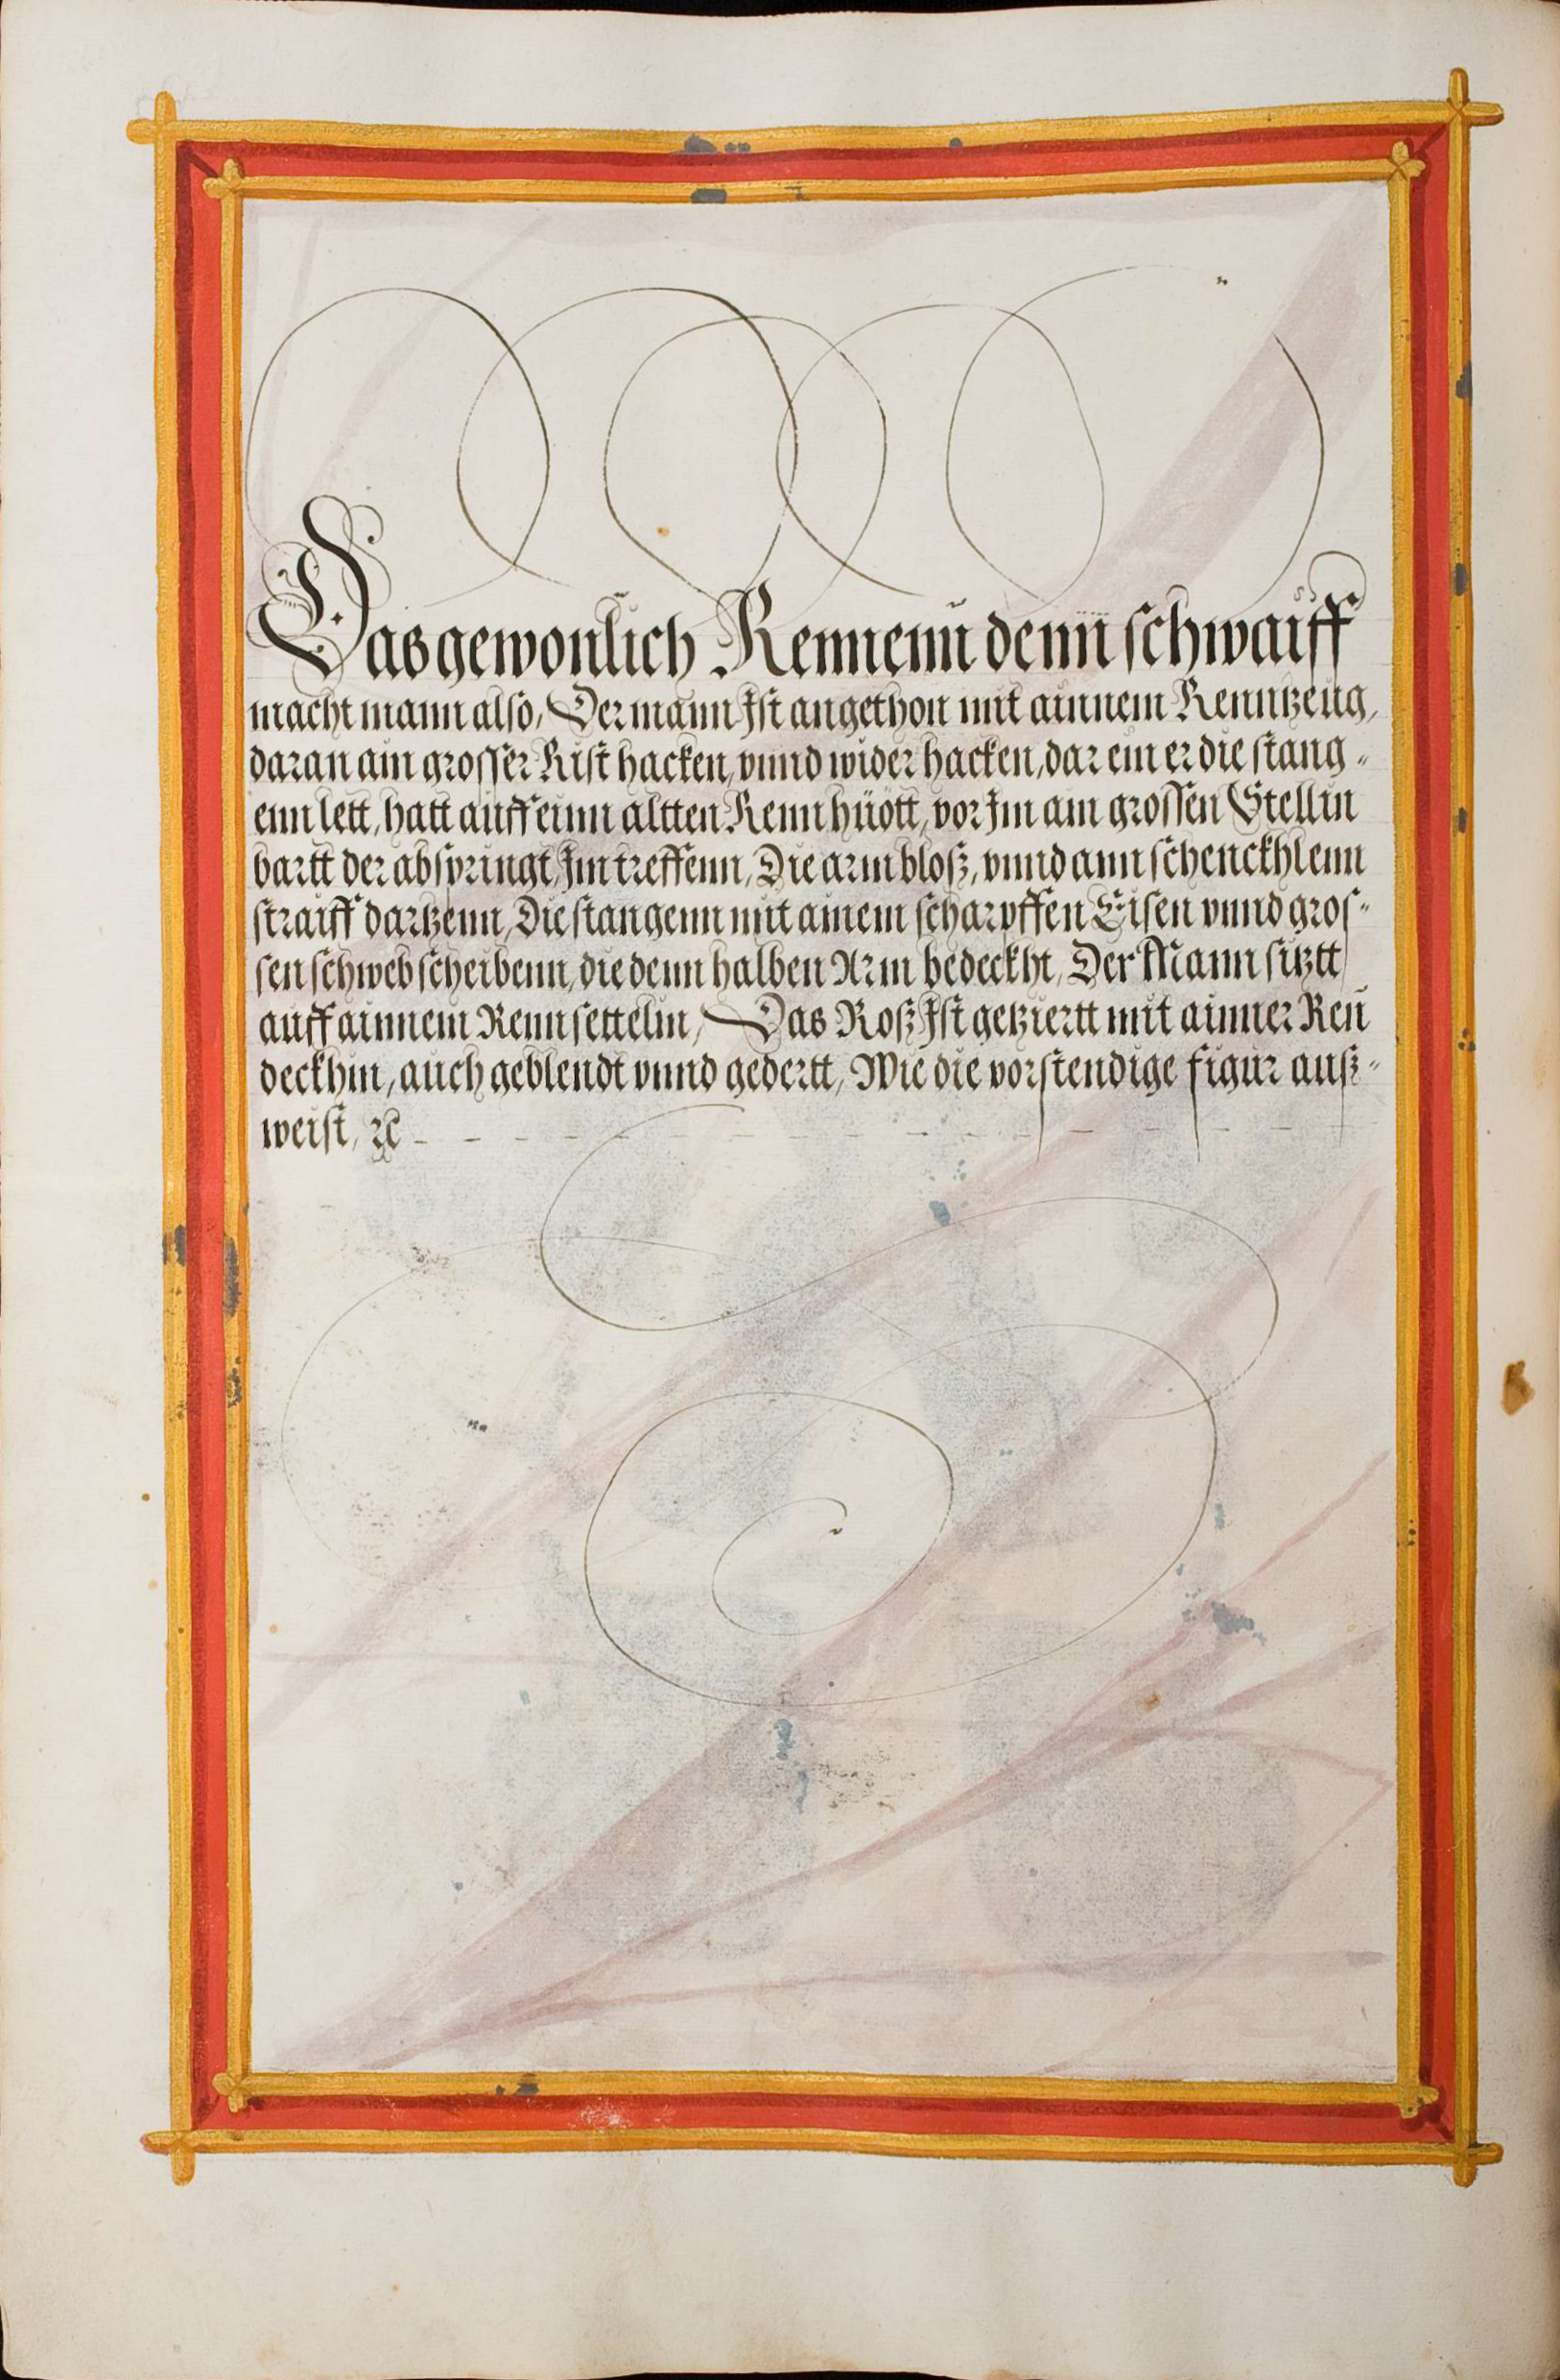 Das gewonlich Rennenn denn schwaiff
macht mann also, Der mann Ist angethon mit ainnem Renntzeug,
daran ain grosser Rist hacken, vnnd wider hacken, dar ein er die stang-
enn lett, hatt auff einn altten Renn hüott, vor Im ain grossen Stellin
bartt der abspringt, Im treffenn, Die arm bloß, vnnd ann schenckhlenn
straiff dartzenn, Die stangenn mit ainem scharpffen Eisen vnnd gros-
sen schwebscheibenn, die denn halben Arm bedeckht, Der Mann sitztt
auff ainnem Rennsettelin, Das Roß Ist getziertt mit ainner Ren
deckhin, auch geblendt vnnd gedertt, Wie die vorstendige figur auß-
weist, ꝛc